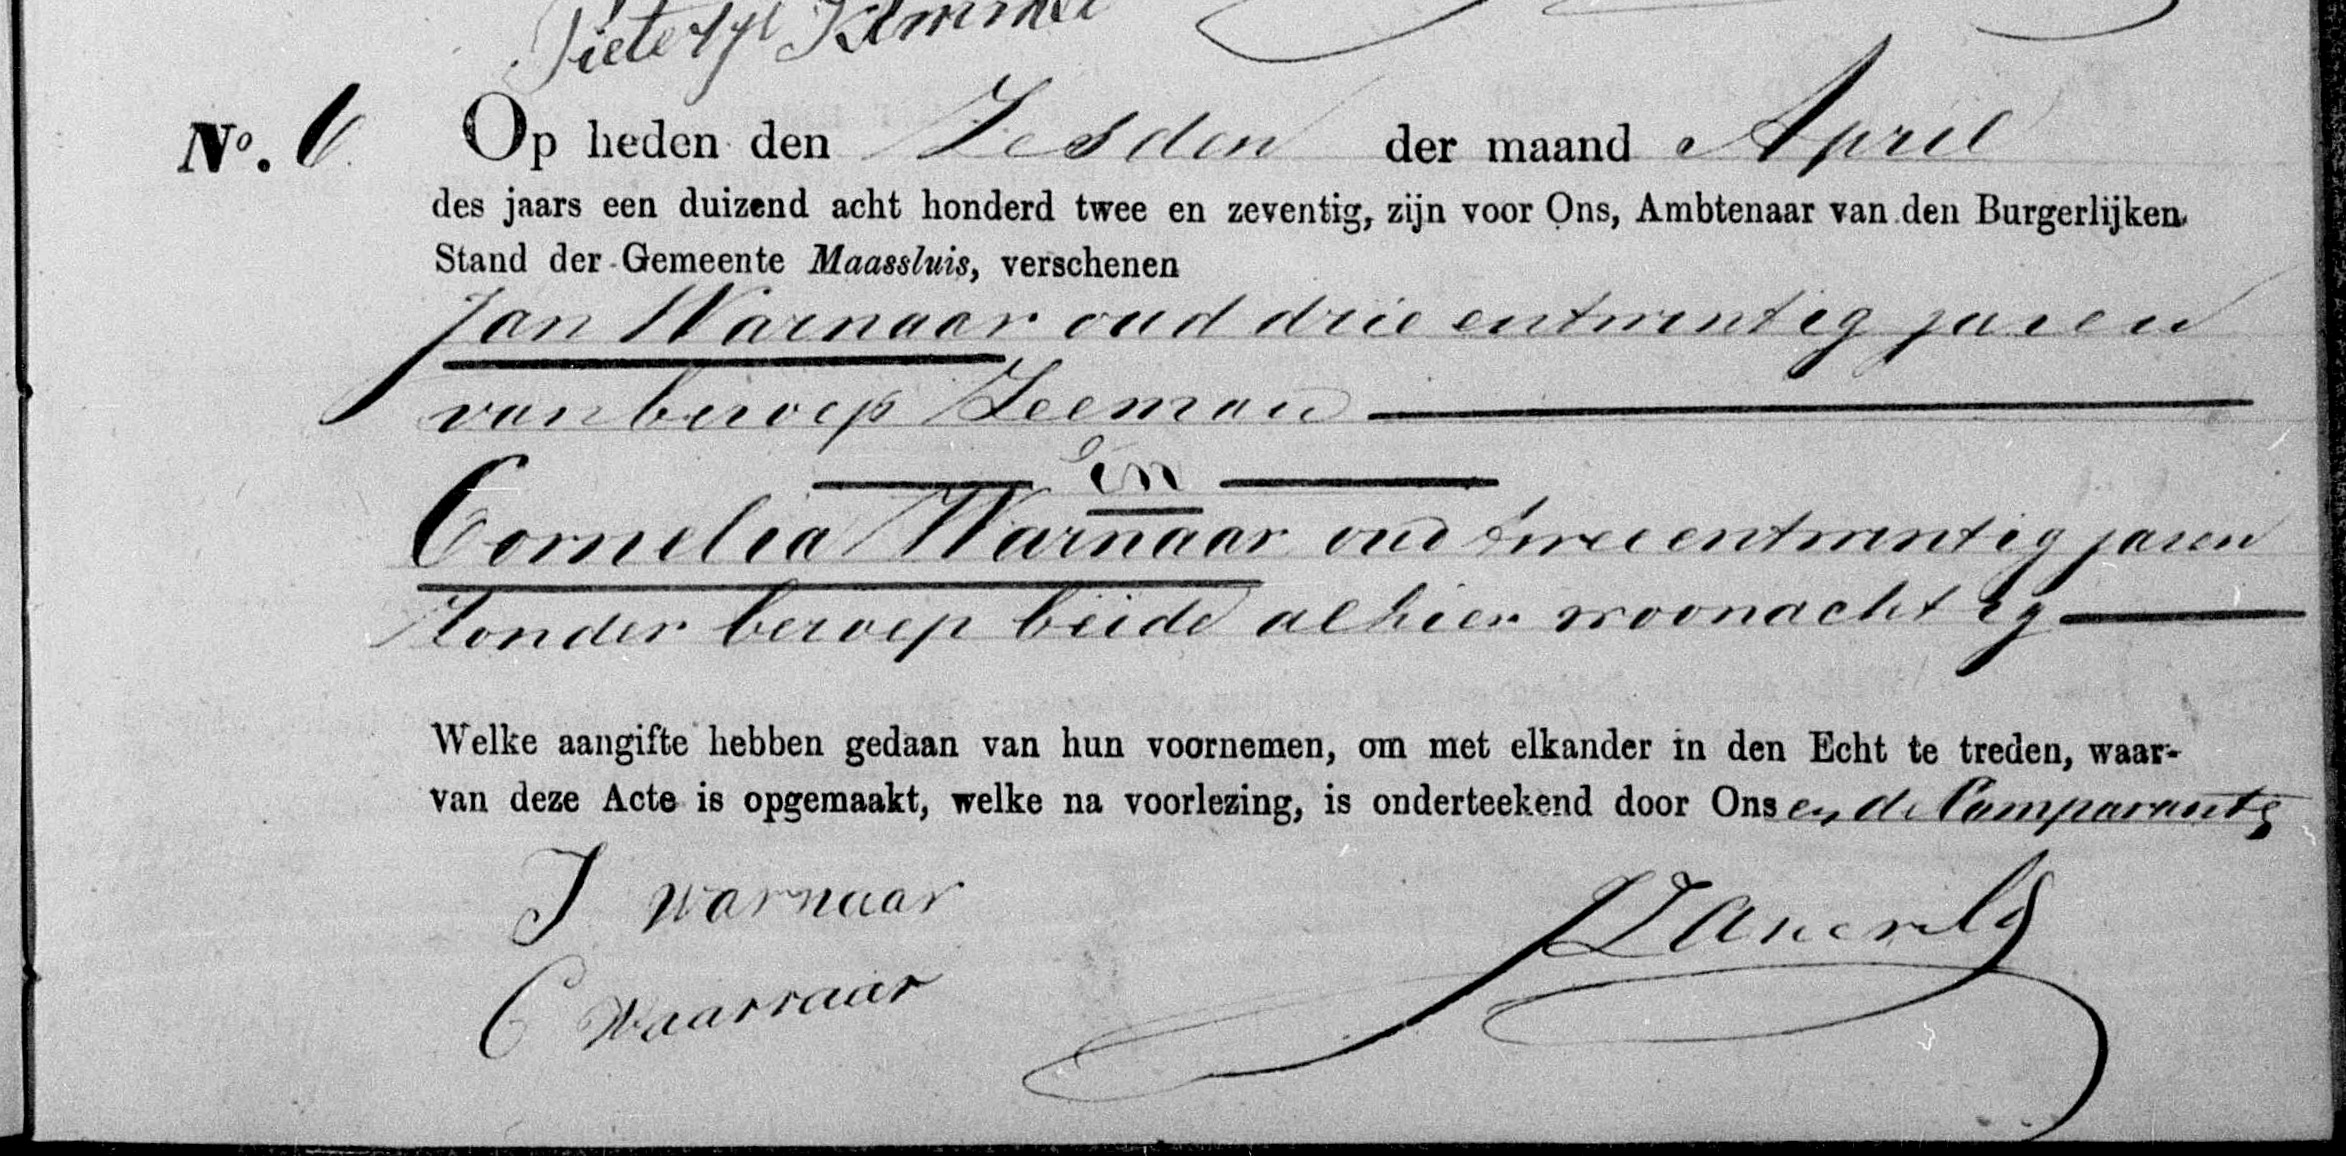 Pietertje
No. 6 Op heden den Zesden der maand April
des jaars een duizend acht honderd twee en zeventig, zijn voor Ons, Ambtenaar van den Burgerlijken
Stand der Gemeente Maassluis, verschenen
Jan Warnaar oud drie entwintig jaren
van beroep Zeeman
en
Cornelia Warnaar oud twee entwintig jaren
Zonder beroep beide alhier woonachtig
Welke aangifte hebben gedaan van hun voornemen, om met elkander in den Echt te treden, waar-
van deze Acte is opgemaakt, welke na voorlezing, is onderteekend door Ons en de Comparanten
J Warnaar
C Waarnaar